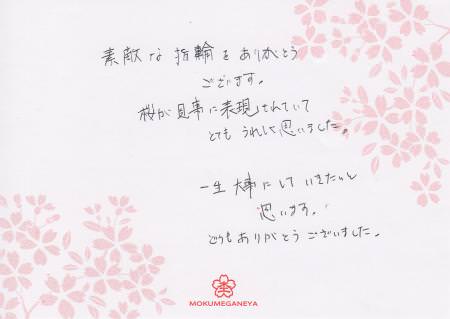 素敵な指輪をありがとう
ございます。
桜が見事に表現されていて
とても うれしく思いました。
一生大事にして いきたいと
思います。
どうもありがとうございました。
MOKUMEGANEYA